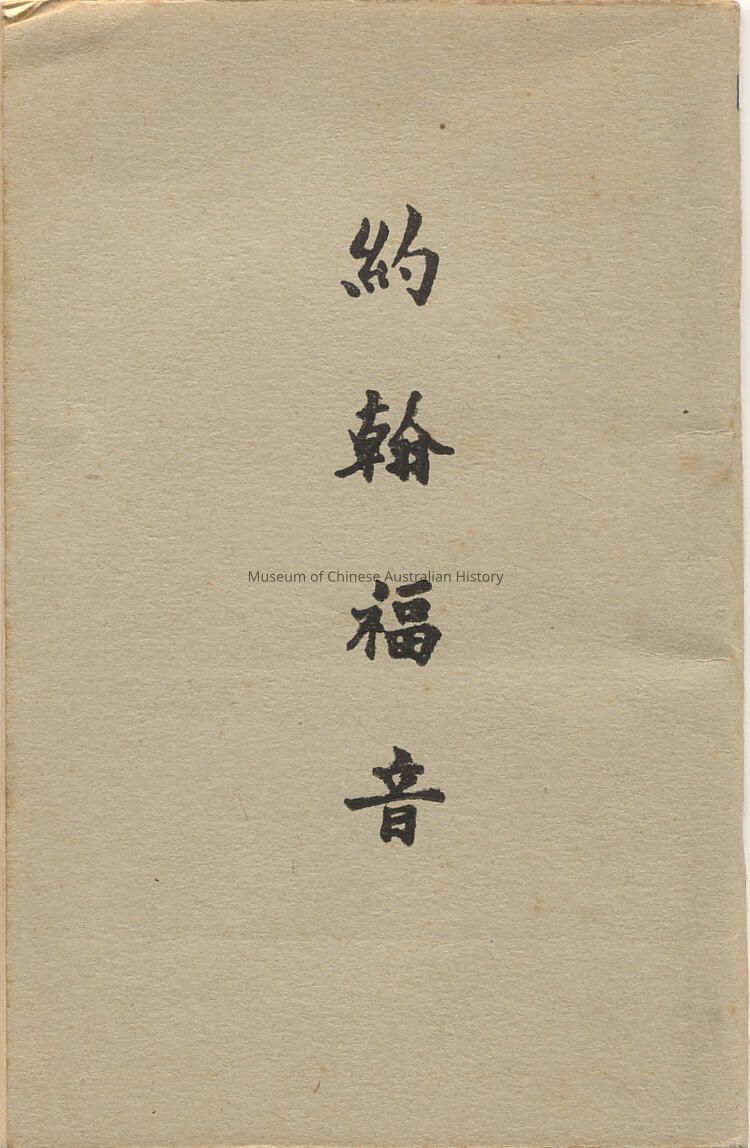 約翰福音
Museum of Chinese Australian History